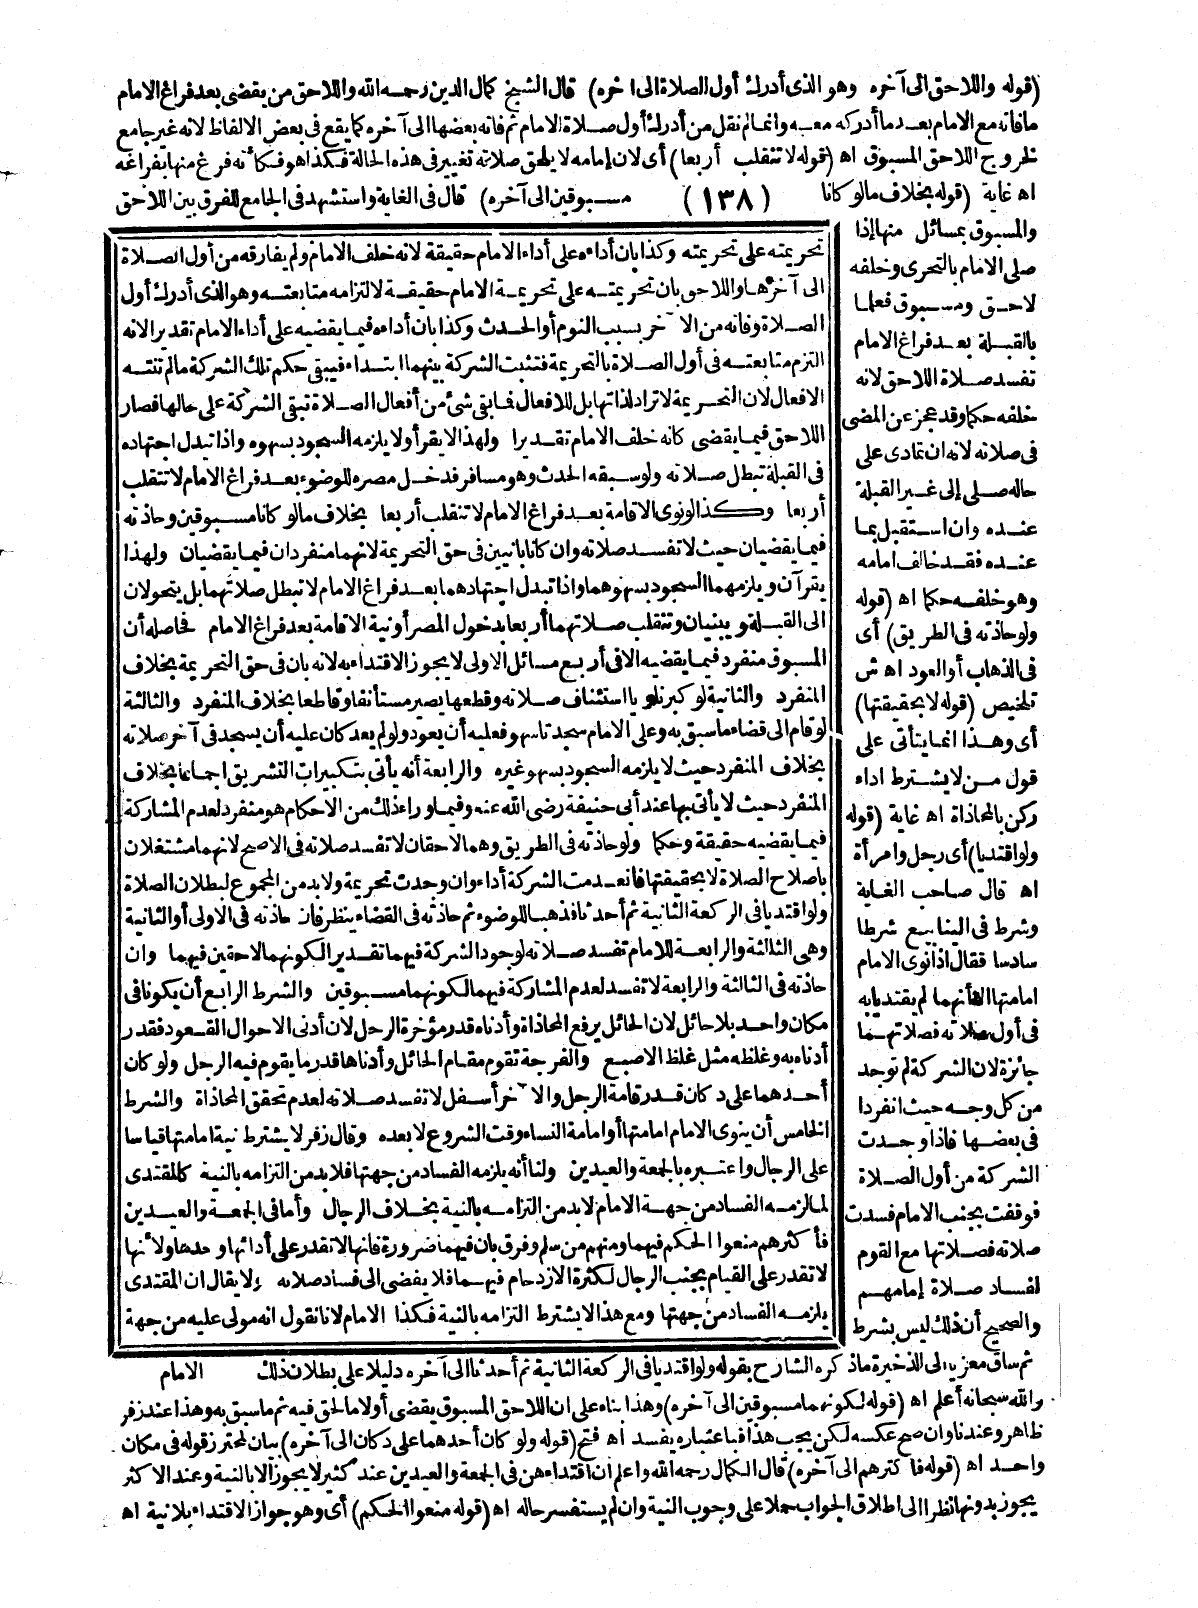 (قوله واللاحق الى آخره وهو الذى أدرك أول الصلاة الى اخره) قال الشيخ كمال الدين رحمه الله واللاحق من يقضى بعد فراغ الامام
ما فاته مع الامام بعد ما أدركه معه وانما لم نقل من أدرك أول صلاة الامام ثم فاته بعضها الى آخره كما يقع فى بعض الالفاظ لانه غير جامع
لخروج اللاحق المسبوق اه (قوله لا تنقلب أربعا) أى لان إمامه لا يلحق صلاته تغيير فى هذه الحالة فكذا هو فكأنه فرغ منها بفراغه
اه غاية (قوله بخلاف ما لو كانا (١٣٨) مسبوقين الى آخره) قال فى الغاية واستشهد فى الجامع للفرق بين اللاحق
والمسبوق بمسائل منها إذا
صلى الامام بالتحرى وخلفه
لاحق ومسبوق فعلما
بالقبلة بعد فراغ الامام
تفسد صلاة اللاحق لانه
خلفه حكما وقد عجز عن المضى
فى صلاته لانه ان تمادى على
حاله صلى إلى غير القبلة
عنده وان استقبل بما
عنده فقد خالف امامه
وهو خلفه حكما اه (قوله
ولو حاذته فى الطريق) أى
فى الذهاب أو العود اه ش
تلخيص (قوله لا بحقيقتها)
أى وهذا انما يتأتى على
قول من لا يشترط اداء
ركن بالمحاذاة اه غاية (قوله
ولو اقتديا) أى رجل وامرأة
اه قال صاحب الغاية
وشرط فى الينابيع شرطا
سادسا فقال اذا نوى الامام
امامتها الا أنهما لم يقتديا به
فى أول صلاته فصلاتهما
جائزة لان الشركة لم توجد
من كل وجه حيث انفردا
فى بعضها فاذا وجدت
الشركة من أول الصلاة
فوقفت بجنب الامام فسدت
صلاته فصلاتها مع القوم
لفساد صلاة إمامهم
والصحيح أن ذلك ليس بشرط
تحريمته على تحريمته وكذا بان أداءه على أداء الامام حقيقة لانه خلف الامام ولم يفارقه من أول الصلاة
الى آخرها واللاحق بان تحريمته على تحريمة الامام حقيقة لالتزامه متابعته وهو الذى أدرك أول
الصلاة وفاته من الآخر بسبب النوم أو الحدث وكذا بان أداءه فيما يقضيه على أداء الامام تقديرا لانه
التزم متابعته فى أول الصلاة بالتحريمة فتثبت الشركة بينهما ابتداء فيبقى حكم تلك الشركة ما لم تنته
الافعال لان التحريمة لا تراد لذاتها بل للافعال فما بقى شئ من أفعال الصلاة تبقى الشركة على حالها فصار
اللاحق فيما يقضى كانه خلف الامام تقديرا ولهذا لا يقرأ ولا يلزمه السجود بسهوه واذا تبدل اجتهاده
فى القبلة تبطل صلاته ولو سبقه الحدث وهو مسافر فدخل مصره للوضوء بعد فراغ الامام لا تنقلب
أربعا وكذا لو نوى الاقامة بعد فراغ الامام لا تنقلب أربعا بخلاف ما لو كانا مسبوقين وحاذته
فيما يقضيان حيث لا تفسد صلاته وان كانا بانيين فى حق التحريمة لانهما منفردان فيما يقضيان ولهذا
يقرآن ويلزمهما السجود بسهوهما واذا تبدل اجتهادهما بعد فراغ الامام لا تبطل صلاتهما بل يتحولان
الى القبلة ويبنيان وتنقلب صلاتهما أربعا بدخول المصر أو نية الاقامة بعد فراغ الامام فحاصله أن
المسبوق منفرد فيما يقضيه الا فى أربع مسائل الاولى لا يجوز الاقتداء به لانه بان فى حق التحريمة بخلاف
المنفرد والثانية لو كبر ناويا استئناف صلاته وقطعها يصير مستأنفا وقاطعا بخلاف المنفرد والثالثة
لو قام الى قضاء ما سبق به وعلى الامام سجدتا سهو فعليه أن يعود ولو لم يعد كان عليه أن يسجد فى آخر صلاته
بخلاف المنفرد حيث لا يلزمه السجود بسهو غيره والرابعة أنه يأتى بتكبيرات التشريق اجماعا بخلاف
المنفرد حيث لا يأتى بها عند أبى حنيفة رضى الله عنه وفيما وراء ذلك من الاحكام هو منفرد لعدم المشاركة
فيما يقضيه حقيقة وحكما ولو حاذته فى الطريق وهما لاحقان لا تفسد صلاته فى الاصح لانهما مشتغلان
باصلاح الصلاة لا بحقيقتها فانعدمت الشركة أداء وان وجدت تحريمة ولا بد من المجموع لبطلان الصلاة
ولو اقتديا فى الركعة الثانية ثم أحدثا فذهبا للوضوء ثم حاذته فى القضاء ينظر فان حاذته فى الاولى أو الثانية
وهى الثالثة والرابعة للامام تفسد صلاته لوجود الشركة فيهما تقديرا لكونهما لاحقين فيهما وان
حاذته فى الثالثة والرابعة لا تفسد لعدم المشاركة فيهما لكونهما مسبوقين والشرط الرابع أن يكونا فى
مكان واحد بلا حائل لان الحائل يرفع المحاذاة وأدناه قدر مؤخرة الرحل لان أدنى الاحوال القعود فقدر
أدناه به وغلظه مثل غلظ الاصبع والفرجة تقوم مقام الحائل وأدناها قدر ما يقوم فيه الرجل ولو كان
أحدهما على دكان قدر قامة الرجل والآخر أسفل لا تفسد صلاته لعدم تحقق المحاذاة والشرط
الخامس أن ينوى الامام امامتها أو امامة النساء وقت الشروع لا بعده وقال زفر لا يشترط نية امامتها قياسا
على الرجال واعتبره بالجمعة والعيدين ولنا أنه يلزمه الفساد من جهتها فلا بد من التزامه بالنية كالمقتدى
لما لزمه الفساد من جهة الامام لا بد من التزامه بالنية بخلاف الرجال وأما فى الجمعة والعيدين
فأكثرهم منعوا الحكم فيهما ومنهم من سلم وفرق بان فيهما ضرورة فانها لا تقدر على أدائها وحدها ولأنها
لا تقدر على القيام بجنب الرجال لكثرة الازدحام فيهما فلا يفضى الى فساد صلاته ولا يقال ان المقتدى
يلزمه الفساد من جهتها ومع هذا لا يشترط التزامه بالنية فكذا الامام لانا نقول انه مولى عليه من جهة
الامام
ثم ساق معزيا الى الذخيرة ما ذكره الشارح بقوله ولو اقتديا فى الركعة الثانية ثم أحدثا الى آخره دليلا على بطلان ذلك
والله سبحانه أعلم اه (قوله لكونهما مسبوقين الى آخره) وهذا بناء على ان اللاحق المسبوق يقضى أولا ما لحق فيه ثم ما سبق به وهذا عند زفر
ظاهر وعندنا وان صح عكسه لكن يجب هذا فباعتباره يفسد اه فتح (قوله ولو كان أحدهما على دكان الى آخره) بيان لمحترز قوله فى مكان
واحد اه (قوله فأكثرهم الى آخره) قال الكمال رحمه الله واعلم أن اقتداءهن فى الجمعة والعيدين عند كثير لا يجوز الا بالنية وعند الاكثر
يجوز بدونها نظرا الى اطلاق الجواب حملا على وجوب النية وان لم يستفسر حاله اه (قوله منعوا الحكم) أى وهو جواز الاقتداء بلا نية اه